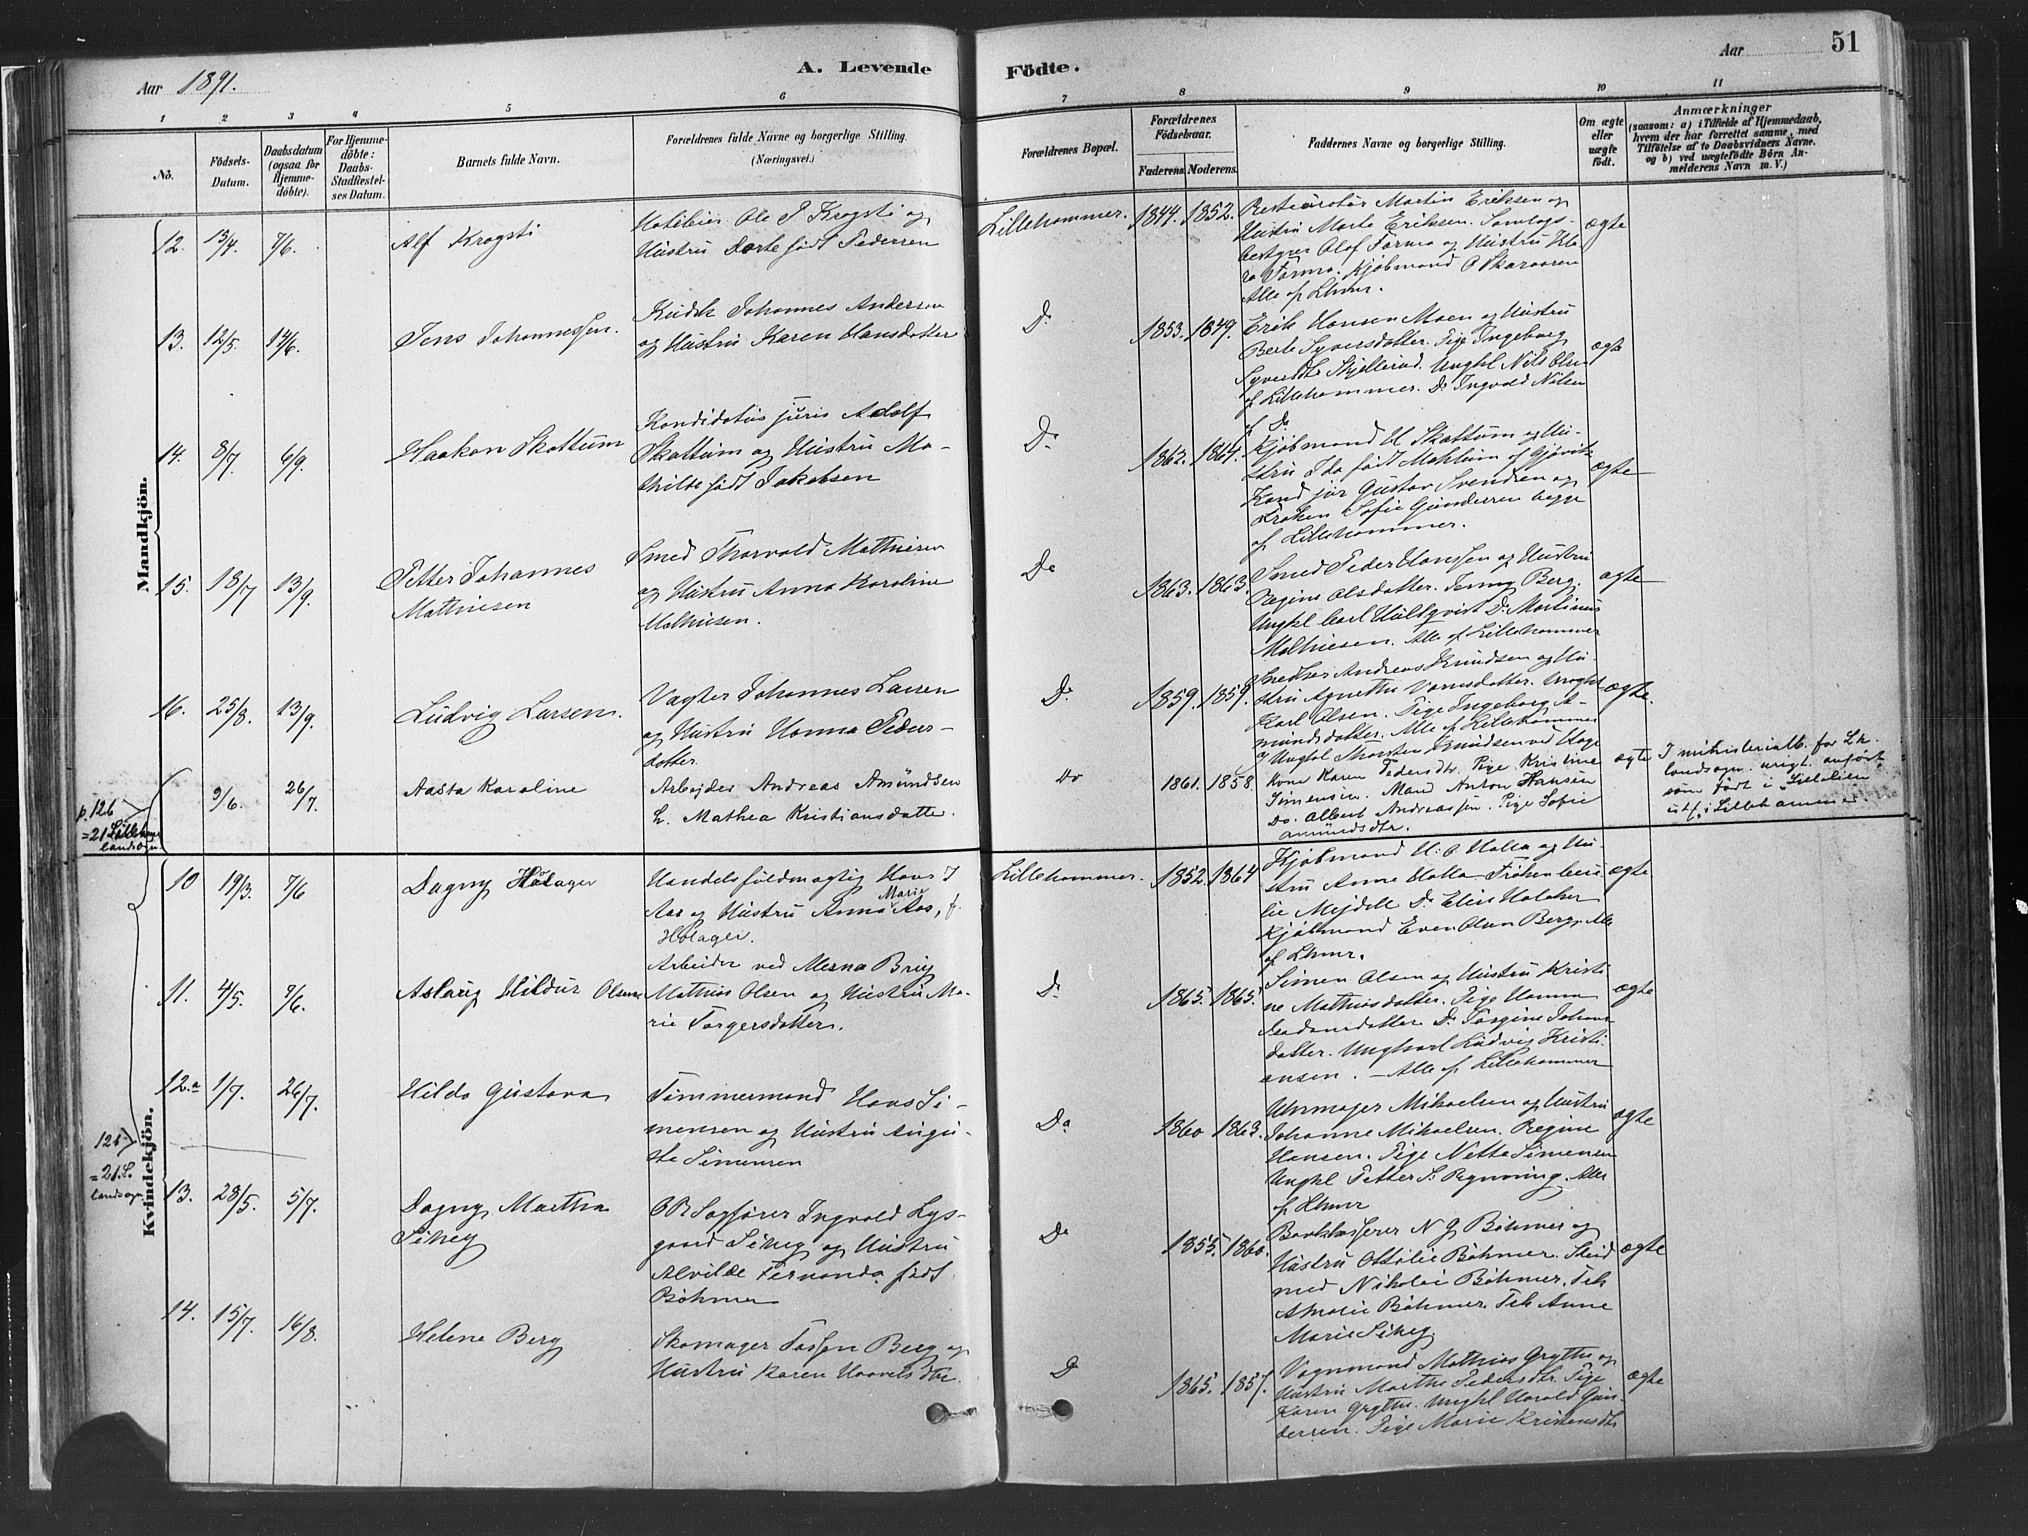 Aar 1891.
A. Levende
Födte.
Aar
51
1 2 3 4 5 6 7 8 9 10 11
No.
Födsels-
Datum.
Daabsdatum
(ogsaa for
Hjemme-
döbte).
For Hjemme-
döbte:
Daabs-
Stadfæstel-
ses Datum.
Barnets fulde Navn.
Forældrenes fulde Navne og borgerlige Stilling.
(Næringsvei.)
Forældrenes Bopæl.
Forældrenes
Födselsaar.
Faderens. Moderens.
Faddernes Navne og borgerlige Stilling.
Om ægte
eller
uægte
födt.
Anmærkninger
(saasom: a) i Tilfælde af Hjemmedaab,
hvem der har forrettet samme, med
Tilföielse af to Daabsvidners Navne.
og b) ved uægtefödte Börn An-
melderens Navn m. V.)
Mandkjön.
12. 13/4. 7/6.
Alf Krogsti
Ole P Krogsti og
Hustru Dorte født Pedersen
Lillehammer. 1844. 1852.
Restauratør Martin Eriksen og
Hustru Marte Eriksen. Samlags-
bestyrer Olof Formo og Hustru Kla-
ra Formo. Kjøbmand O Skaraasen
Alle af Lhmr.
ægte
13. 12/5. 14/6.
Jens Johannessen.
Kudsk Johannes Andersen
og Hustru Karen Hansdatter
Do 1853. 1849.
Erik Hansen Moen og Hustru
Berte Syversdatter. Pige Ingeborg
Syversdtr Skjellerud. Ungkl Nils Olsen
af Lillehammer. Do Ingvald Nilsen
f Do
ægte
14. 8/7. 6/9.
Haakon Skattum
Kandidatus juris Adolf
Skattum og Hustru Ma-
thilde født Jakobsen
Do 1862. 1864.
Kjøbmand H Skattum og Hu-
stru Ida født Mæhlum af Gjøvik
Kand jur Gustav Svendsen og
Frøken Sofie Gundersen begge
af Lillehammer.
ægte
15. 18/7 13/9.
Petter Johannes
Mathiesen
Smed Thorvald Mathiesen
og Hustru Anna Karoline
Mathiesen.
Do 1863. 1863.
Smed Peder Hanssen og Hustru
Regine Olsdatter. Jenny Berg.
Ungkl Carl Hullqvist Do Martinus
Mathiesen. Alle af Lillehammer
ægte
16. 25/8. 13/9.
Ludvig Larsen.
Vagter Johannes Larsen
og Hustru Hanna Peders-
datter.
Do. 1859. 1859.
Snedker Andreas Knudsen og Hu-
stru Agnethe Ungkl
Karl Olsen. Pige Ingeborg A-
mundsdatter. Alle af Lillehammer
og Ungkl Thorsten Knudsen ved Hage
ægte.
p. 126
= 21 Lilleham
landsogn.
9/6. 26/7.
Aasta Karoline
Arbejder Andreas Amundsen
h. Mathea Kristiansdatter.
Do 1861. 1858.
Kone Karen Pedersdtr. Pige Kristine
Simensen. Mand Anton Hansen
Do. Albert Andreassen. Pige Sofie
Amundsdtr.
ægte
I ministerialb. for Lh.
landsogn urigt. anført
som født i "Lielolien"
istf. i Lillehammer.
Kvindekjön.
126
= 21 L.
landsogn.
10 19/3. 7/6
Dagny Holager
Handelsfuldmægtig Hans J
Aas og Hustru Anna Marie Aas, f.
Holager.
Lillehammer. 1852. 1864
Kjøbmand H. O Holla og Hu-
stru Anne Holla Frøken
Mejdell Do Elise Holaker
Kjøbmand Even Olsen Berg. Alle
af Lhmr.
ægte
11. 4/5. 7/6.
Aslaug Hildur Olsen.
Arbeider ved Mesna Brug
Mathias Olsen og Hustru Ma-
rie Torgersdatter.
Do 1865. 1865.
Simen Olsen og Hustru Kristi-
ne Mathiasdatter. Pige Hanna
Do Torgine Johans-
datter. Ungkarl Ludvig Kristi-
ansen. – Alle af Lillehammer
ægte
12.a 1/7. 26/7.
Hilda Gustava
Tømmermand Hans Si-
mensen og Hustru Augu-
sta Simensen
Do 1860 1863.
Uhrmager Mikaelsen og Hustru
Johanne Mikaelsen. Regine
Hansen. Pige Netta Simensen
Ungkl Petter S. Rognning. Alle
af Lhmr
ægte
13. 28/5. 5/7.
Dagny Martha
Sikey
OR Sagfører Ingvald Lys-
gaard Sikey og Hustru
Alvilde Fernanda født
Bøhmer
Do 1855. 1860.
Bankkasserer N G Bøhmer og
Hustru Ottilie Bøhmer. Stud
med Nikolai Bøhmer. Frk
Amalie Bøhmer. Frk Anne
Marie Sikey.
ægte
14. 15/7. 16/8.
Helene Berg
Skomager Tossen Berg og
Hustru Karen Haavelsdtr.
D 1865. 1857.
Vognmand Mathias Grytte og
Hustru Marthe Pedersdtr. Pige
Karen Grytte. Ungkl Harald Gun-
dersen. Pige Marie Kristensdtr
ægte